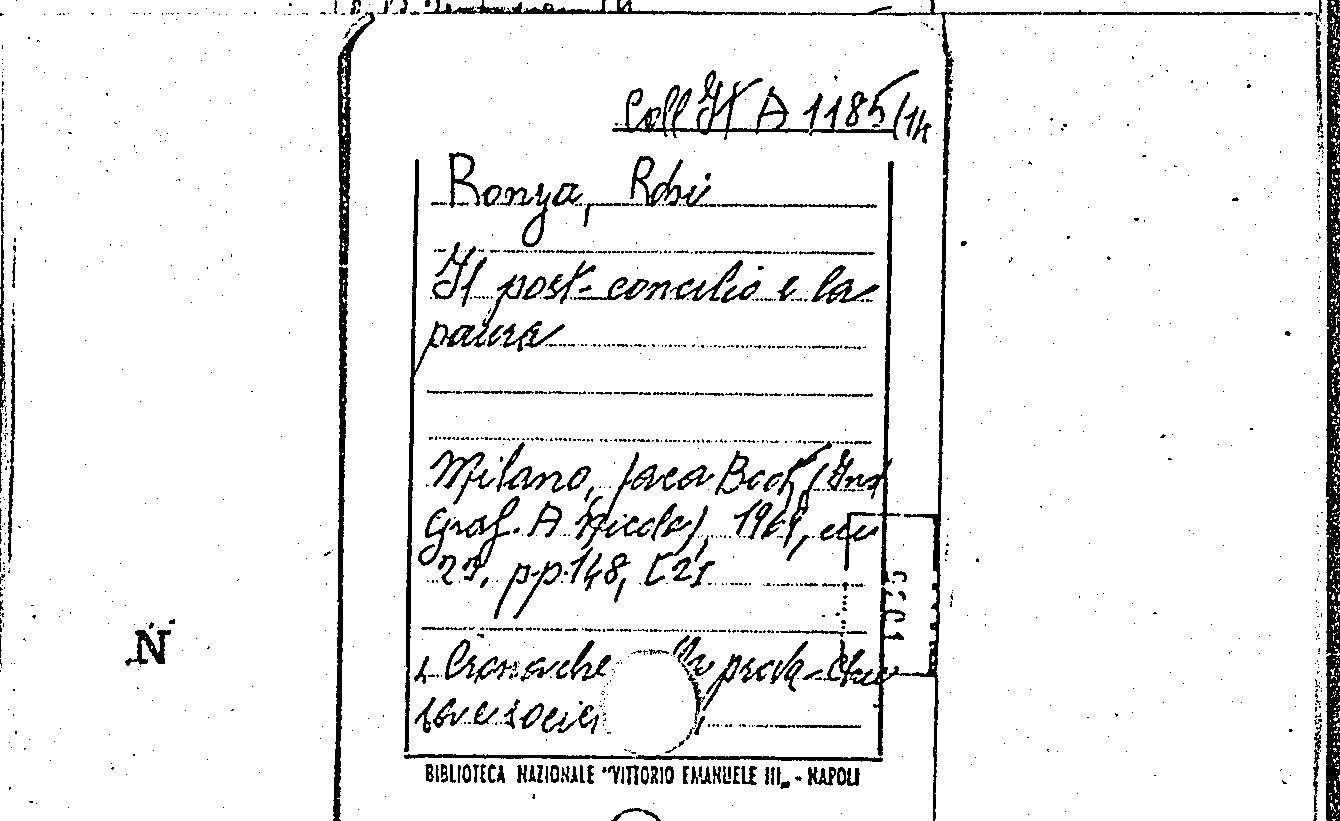 Coll It A 1185/14
Ronza, Robi
Il post-concilio e la
paura
Milano, Jaca Book (Ind
Graf. A Nicola), 1969, cm
23, pp. 148, [2]
Cronache prova-
socie
N
BIBLIOTECA NAZIONALE "VITTORIO EMANUELE III„ - NAPOLI